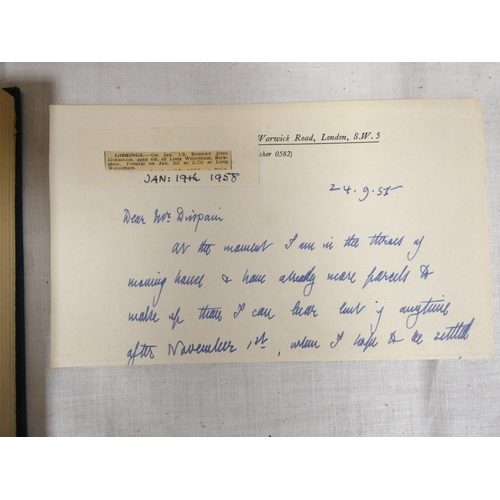 Warwick Road, London, S.W. 5
cker 0582)
GIBBINGS.—On Jan. 19, ROBERT JOHN
GIBBINGS, aged 68, of Long Wittenham, Berk-
shire. Funeral on Jan. 22 at 2.30 at Long
Wittenham.
JAN: 19th 1958
24.9.55
Dear Mr
At the moment I am in the throes of
moving house & have already more parcels to
make up than I can bear but if anytime
after November 1st, when I hope to be settled